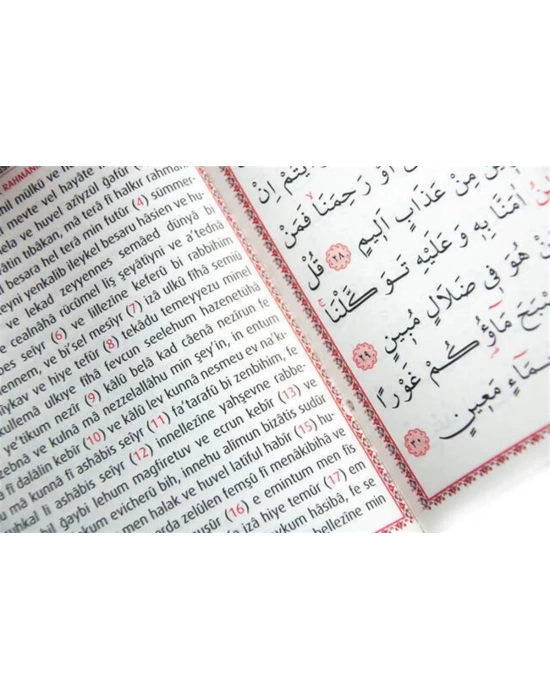 RAHMANI
hil mülkü ve h
meyte vel hayâte
ela ve huvel azîyzul gafûr
âtin tıbâkan, mâ terâ fî halkır rahmani
l besara hel terâ min futûr (4) sümmer-
eyni yenkalib ileykel besaru hâsien ve hu-
ve lekad zeyyennes semâed dünyâ bi
e cealnâhâ rücûmel liş şeyâtıyni ve a'tednâ
bes seîyr (6) ve lillezîne keferû bi rabbihim
ennem, ve bi'sel mesîyr (7) izâ ülkû fîhâ semiû
îykav ve hiye tefûr (8) tekâdu temeyyezu minel
kullemâ ulkıye fîhâ fevcun seelehum hazenetühâ
e'tikum nezîr (9) kâlû belâ kad câenâ nezîrun fe
zebnâ ve kulnâ mâ nezzelallâhu min şey'in, in entum
â fî dalâlin kebîr (10) ve kâlû lev kunnâ nesmeu ev na'k-
mâ kunnâ fî ashâbis seîyr (11) fa'tarafû bi zenbihim, fe
uhkal li ashâbis seîyr (12) innellezîne yahşevne rabbe-
bil ğaybi lehum magfiretuv ve ecrun kebîr (13) ve
kum evicherû bih, innehu alîmun bizâtis sudûr
men halak ve huvel latîful habîr (15) hu-
arda zelûlen femşû fî menâkibihâ ve
nuşûr (16) e emintum men fis
e izâ hiye temûr (17) em
eykum hâsibâ, fe se
bellezîne min
يْتُمْ اِنْ
اَوْ رَحِمَنَا فَمَنْ
مِنْ عَذَابٍ اَلٖيمٍ ٢٨ قُلْ
اٰمَنَّا بِهٖ وَعَلَيْهِ تَوَكَّلْنَا
هُوَ فٖى ضَلَالٍ مُبٖينٍ ٢٩
مَاؤُكُمْ غَوْرًا
مَعٖينٍ ٣٠